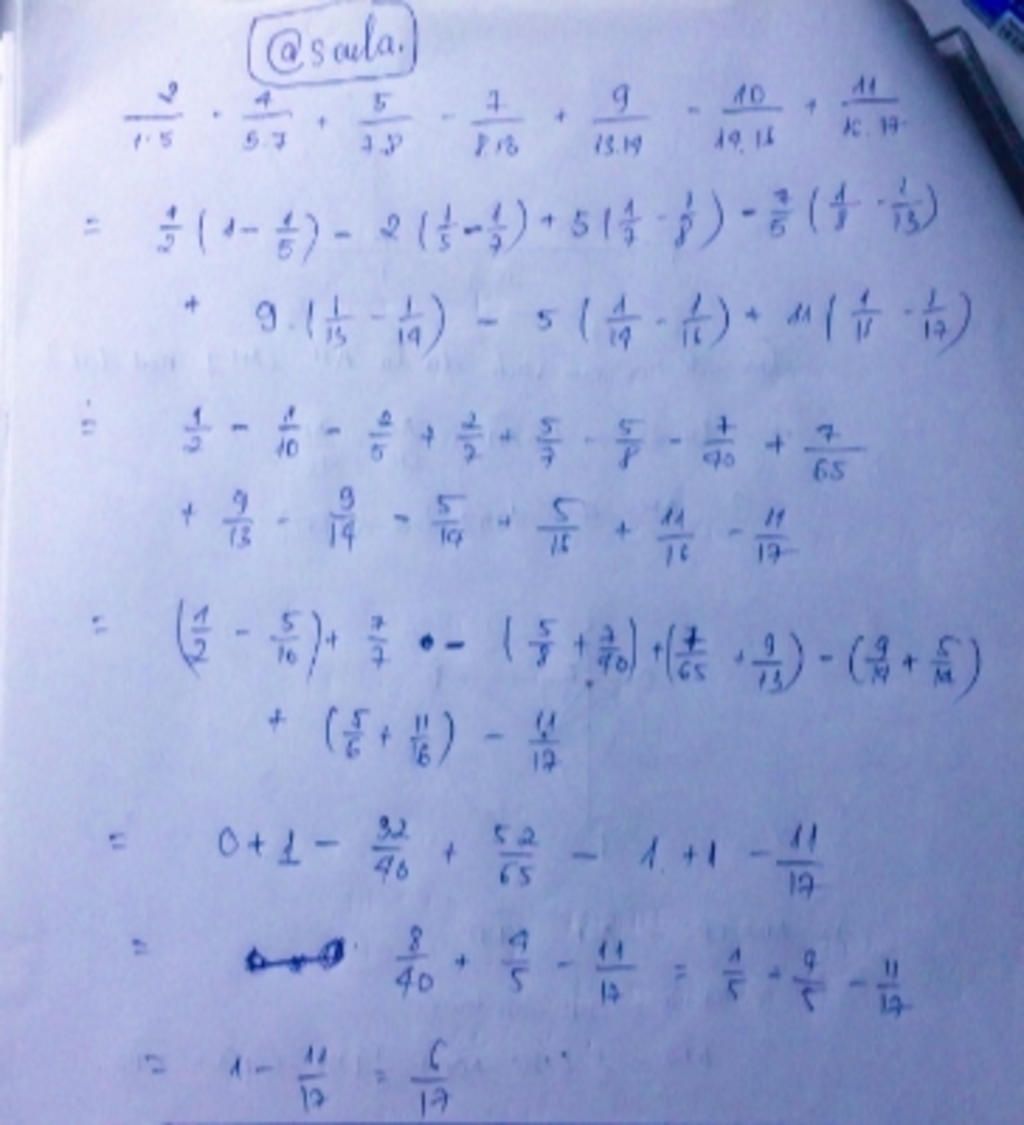 @saula.
2/1·5 - 4/5·7 + 5/7·8 - 7/8·13 + 9/13·14 - 10/14·16 + 11/16·17
= 1/2 (1 - 1/5) - 2 (1/5 - 1/7) + 5 (1/7 - 1/8) - 7/5 (1/8 - 1/13)
+ 9 · (1/13 - 1/14) - 5 (1/14 - 1/16) + 11 (1/16 - 1/17)
= 1/2 - 1/10 - 2/5 + 2/7 + 5/7 - 5/8 - 7/40 + 7/65
+ 9/13 - 9/14 - 5/14 + 5/16 + 11/16 - 11/17
= (1/2 - 5/10) + 7/7 - (5/8 + 7/40) + (7/65 + 9/13) - (9/14 + 5/14)
+ (5/16 + 11/16) - 11/17
= 0 + 1 - 32/40 + 52/65 - 1 + 1 - 11/17
= 8/40 + 4/5 - 11/17 = 1/5 + 4/5 - 11/17
= 1 - 11/17 = 6/17